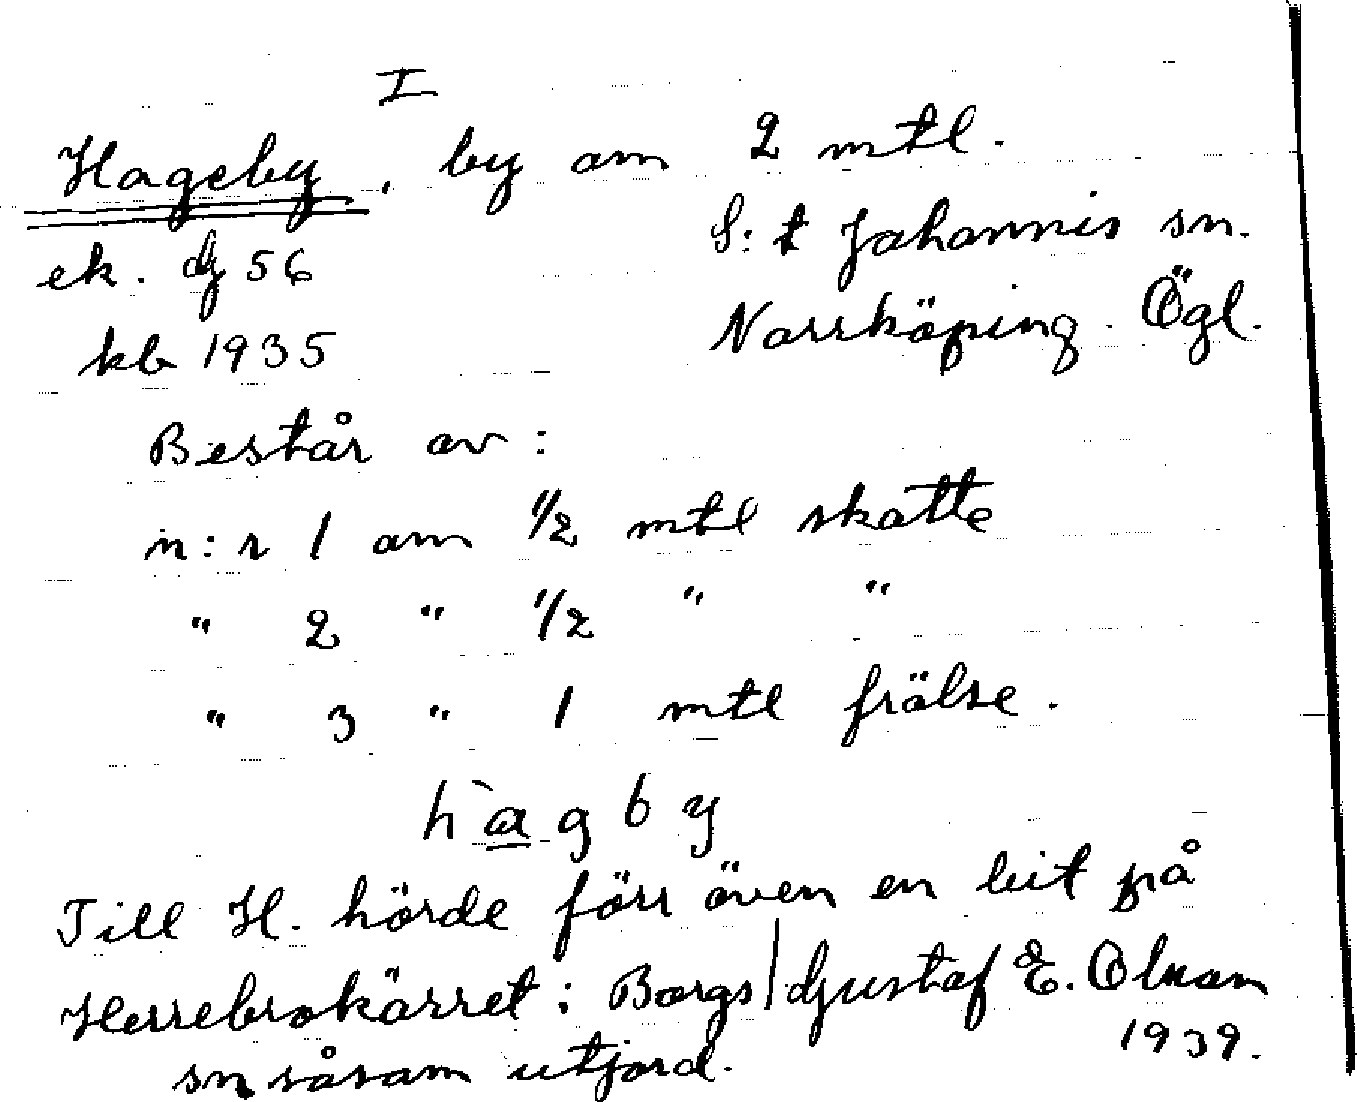 I
Hageby, by om 2 mtl.
S:t Johannis sn.
ek. dj 56
Norrköping. Ögl.
kb 1935
Består av:
n:r 1 om 1/2 mtl skatte
" 2 " 1/2 " "
" 3 " 1 mtl frälse.
h`agby
Till H. hörde förr även en bit på
Herrebrokärret i Borgs
sn såsom utjord.
Gustaf E. Olson
1939.